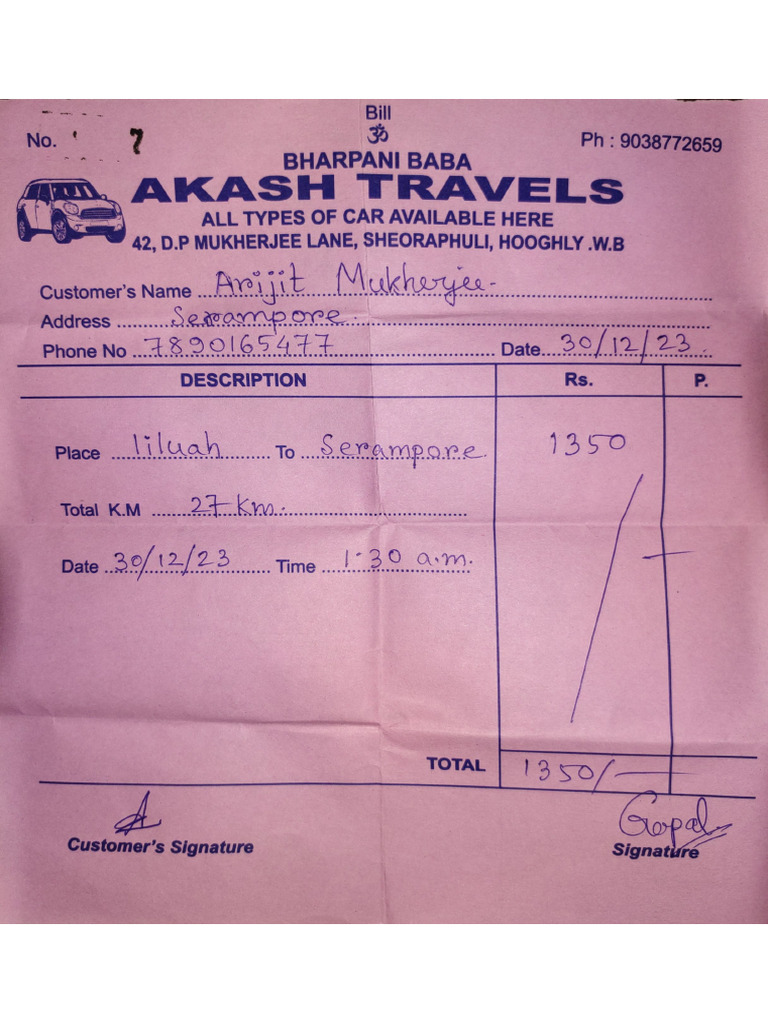 Bill
No. 7 Ph : 9038772659
ॐ
BHARPANI BABA
AKASH TRAVELS
ALL TYPES OF CAR AVAILABLE HERE
42, D.P MUKHERJEE LANE, SHEORAPHULI, HOOGHLY .W.B
Customer's Name Arijit Mukherjee.
Address Serampore.
Phone No 7890165477 Date 30/12/23
DESCRIPTION Rs. P.
Place liluah To Serampore. 1350
Total K.M 27 km.
Date 30/12/23 Time 1.30 a.m.
TOTAL 1350/-
Gopal
Customer's Signature Signature